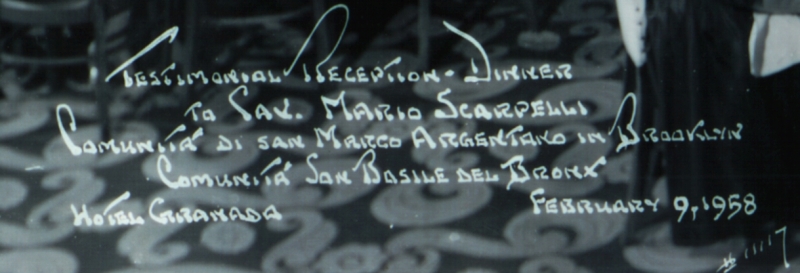 Testimonial Reception - Dinner
to Cav. Mario Scarpelli
Comunità di San Marco Argentano in Brooklyn
Comunità San Basile del Bronx
Hotel Granada February 9, 1958
# 11117